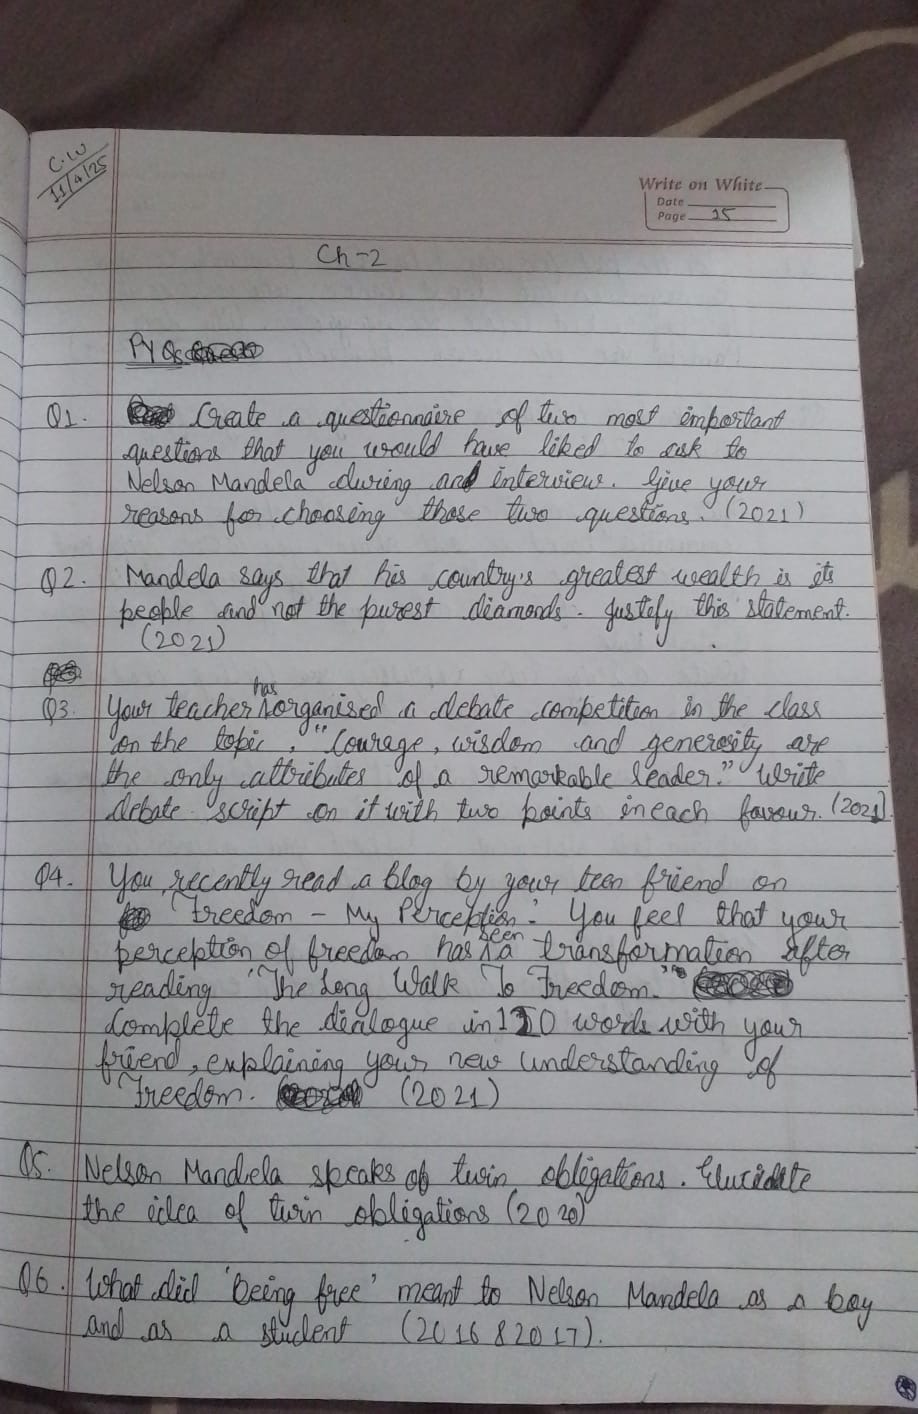 C.W
11/4/25
Write on White
Date
Page 15
Ch-2
PYQs
Q1. Create a questionnaire of two most important
questions that you would have liked to ask to
Nelson Mandela during and interview. Give your
reasons for choosing those two questions. (2021)
Q2. Mandela says that his country's greatest wealth is its
people and not the purest diamonds. Justify this statement.
(2021)
Q3. Your teacher has organised a debate competition in the class
on the topic, "Courage, wisdom and generosity are
the only attributes of a remarkable leader." Write
debate script on it with two points in each favour. (2021)
Q4. You recently read a blog by your teen friend on
'Freedom - My Perception.' You feel that your
perception of freedom has seen a transformation after
reading 'The Long Walk To Freedom.'
Complete the dialogue in 120 words with your
friend, explaining your new understanding of
Freedom. (2021)
Q5. Nelson Mandela speaks of twin obligations. Elucidate
the idea of twin obligations (2020)
Q6. What did 'being free' meant to Nelson Mandela as a boy
and as a student (2016 & 2017).